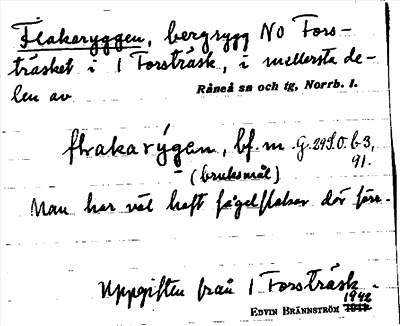 Flakaryggen, bergrygg NO Fors-
träsket i 1 Forsträsk, i mellersta de-
len av Råneå sn och tg, Norrb. l.
flrakarýgan, bf. m. G. 291. O. b. 3,
91.
(bruksmål)
Man har väl haft fågelflakar där förr.
Uppgiften från 1 Forsträsk.
1942
EDVIN BRÄNNSTRÖM